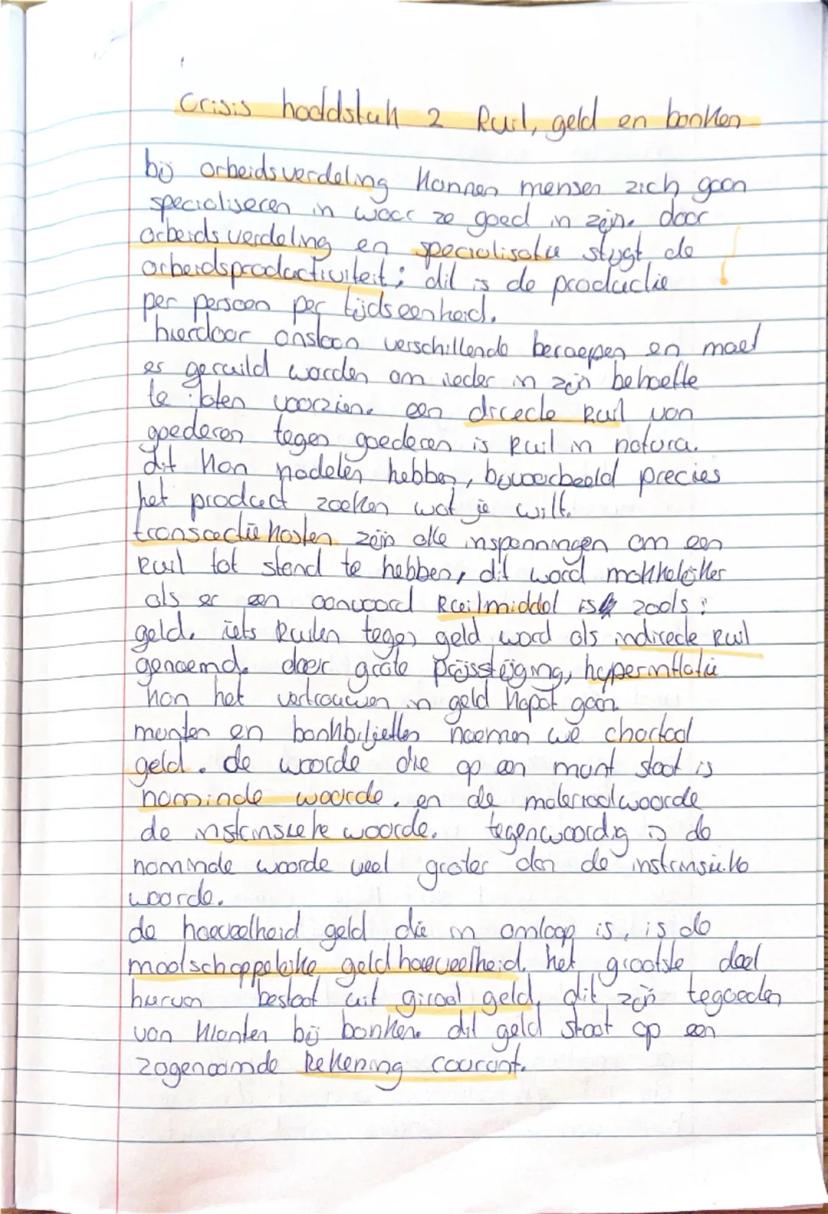 Crisis hoofdstuk 2 Ruil, geld en banken
bij arbeidsverdeling kunnen mensen zich gaan
specialiseren in waar ze goed in zijn. door
arbeidsverdeling en specialisatie stijgt de
arbeidsproductiviteit; dit is de productie
per persoon per tijdseenheid.
hierdoor onstaan verschillende beroepen en moet
er geruild worden om ieder in zijn behoefte
te laten voorzien. een directe Ruil van
goederen tegen goederen is Ruil in natura.
dit kan nadelen hebben, bijvoorbeeld precies
het product zoeken wat je wilt.
transactie kosten zijn alle inspanningen om een
Ruil tot stand te hebben, dit word makkelijker
als er een aanvaard Ruilmiddel is zoals:
geld. iets Ruilen tegen geld word als indirecte Ruil
genoemd. door grote prijsstijging, hyperinflatie
kan het vertrouwen in geld kapot gaan.
munten en bankbiljetten noemen we chartaal
geld. de waarde die op een munt staat is
nominale waarde. en de materiaalwaarde
de instrinsieke waarde. tegenwoordig is de
nominale waarde veel groter dan de instrinsieke
waarde.
de hoeveelheid geld die in omloop is, is de
maatschappelijke geldhoeveelheid. het grootste deel
hurvan bestaat uit giraal geld, dit zijn tegoeden
van klanten bij banken. dit geld staat op een
zogenaamde Rekening courant.